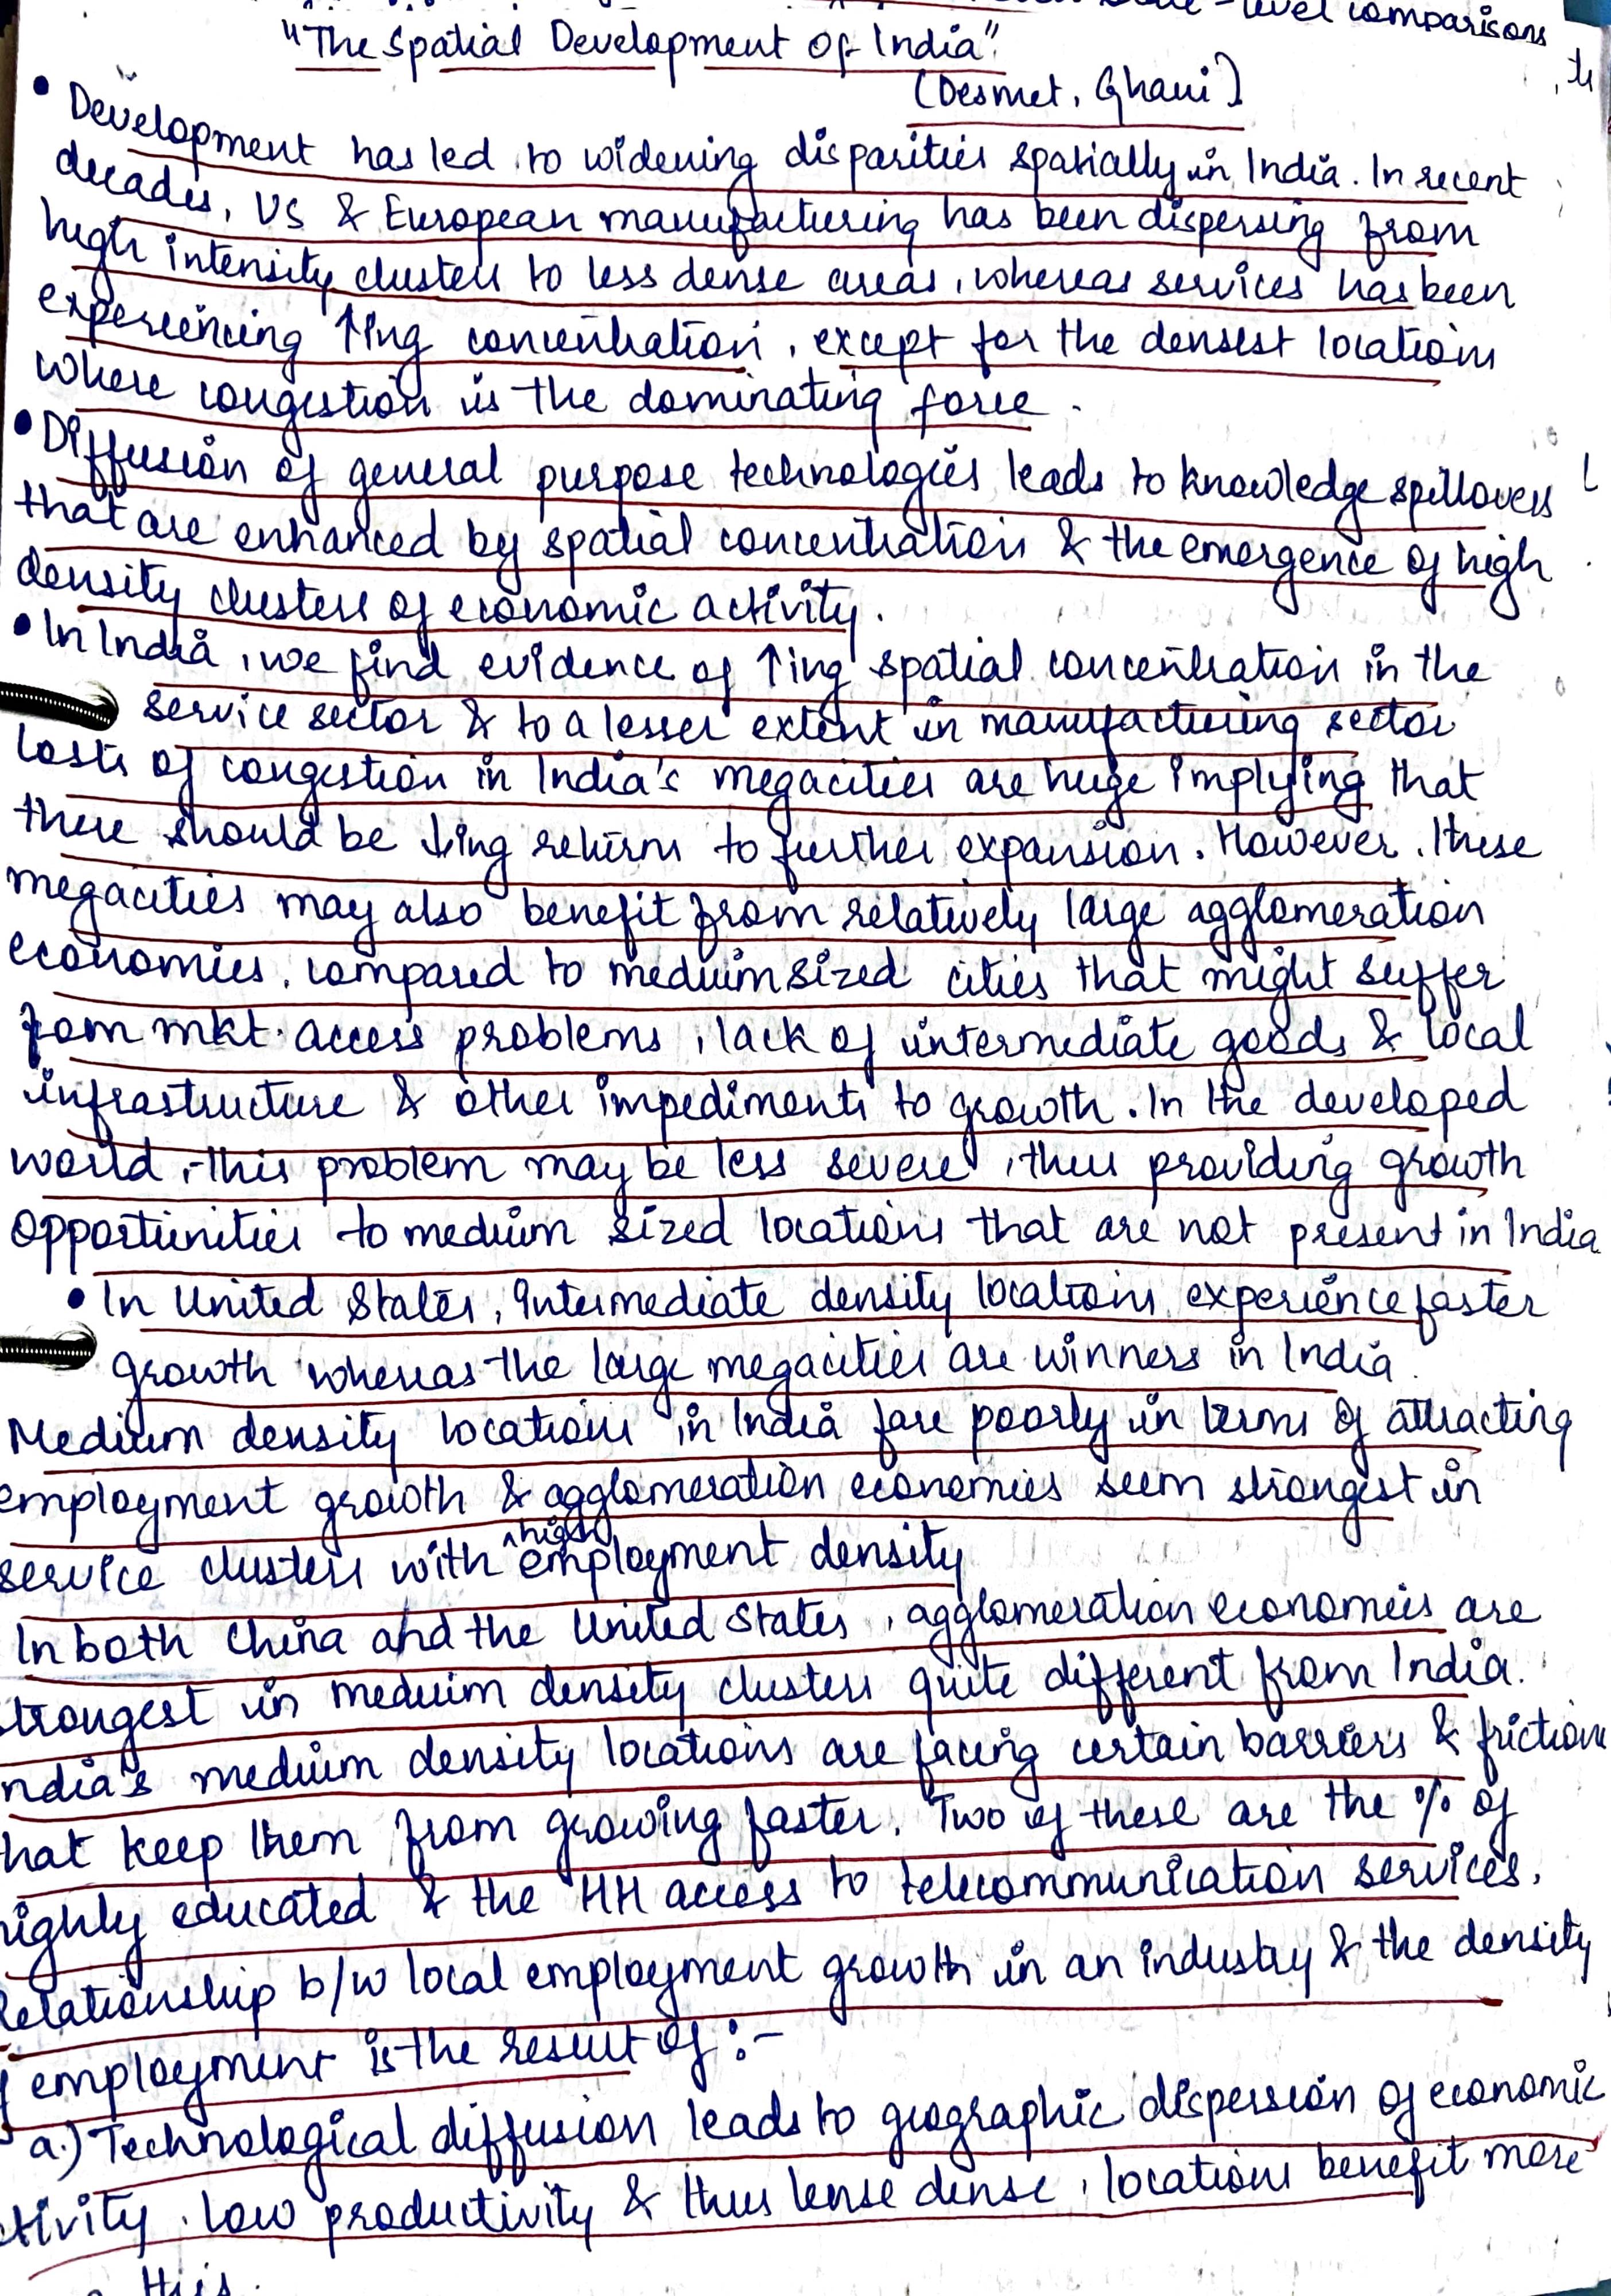 level comparisons
"The Spatial Development Of India".
(Desmet, Ghani)
• Development has led to widening disparities spatially in India. In recent
decades, US & European manufacturing has been dispersing from
high intensity clusters to less dense areas, whereas services has been
experiencing ↑ing concentration, except for the densest locations
where congestion is the dominating force.
• Diffusion of general purpose technologies leads to knowledge spillovers
that are enhanced by spatial concentration & the emergence of high
density clusters of economic activity.
• In India, we find evidence of ↑ing spatial concentration in the
service sector & to a lesser extent in manufacturing sector
Costs of congestion in India's megacities are huge implying that
there should be ↓ing returns to further expansion. However, these
megacities may also benefit from relatively large agglomeration
economies, compared to medium sized cities that might suffer
from mkt. access problems, lack of intermediate goods & local
infrastructure & other impediments to growth. In the developed
world, this problem may be less severe, thus providing growth
opportunities to medium sized locations that are not present in India
• In United States, Intermediate density locations experience faster
growth whereas the large megacities are winners in India.
Medium density locations in India fare poorly in terms of attracting
employment growth & agglomeration economies seem strongest in
service clusters with ^high employment density
In both China and the United States, agglomeration economies are
trongest in medium density clusters quite different from India.
ndia's medium density locations are facing certain barriers & friction
hat keep them from growing faster. Two of these are the % of
highly educated & the HH access to telecommunication services.
Relationship b/w local employment growth in an industry & the density
f employment is the result of :-
a.) Technological diffusion leads to geographic dispersion of economic
tivity. Low productivity & thus lense dense, locations benefit more
this.